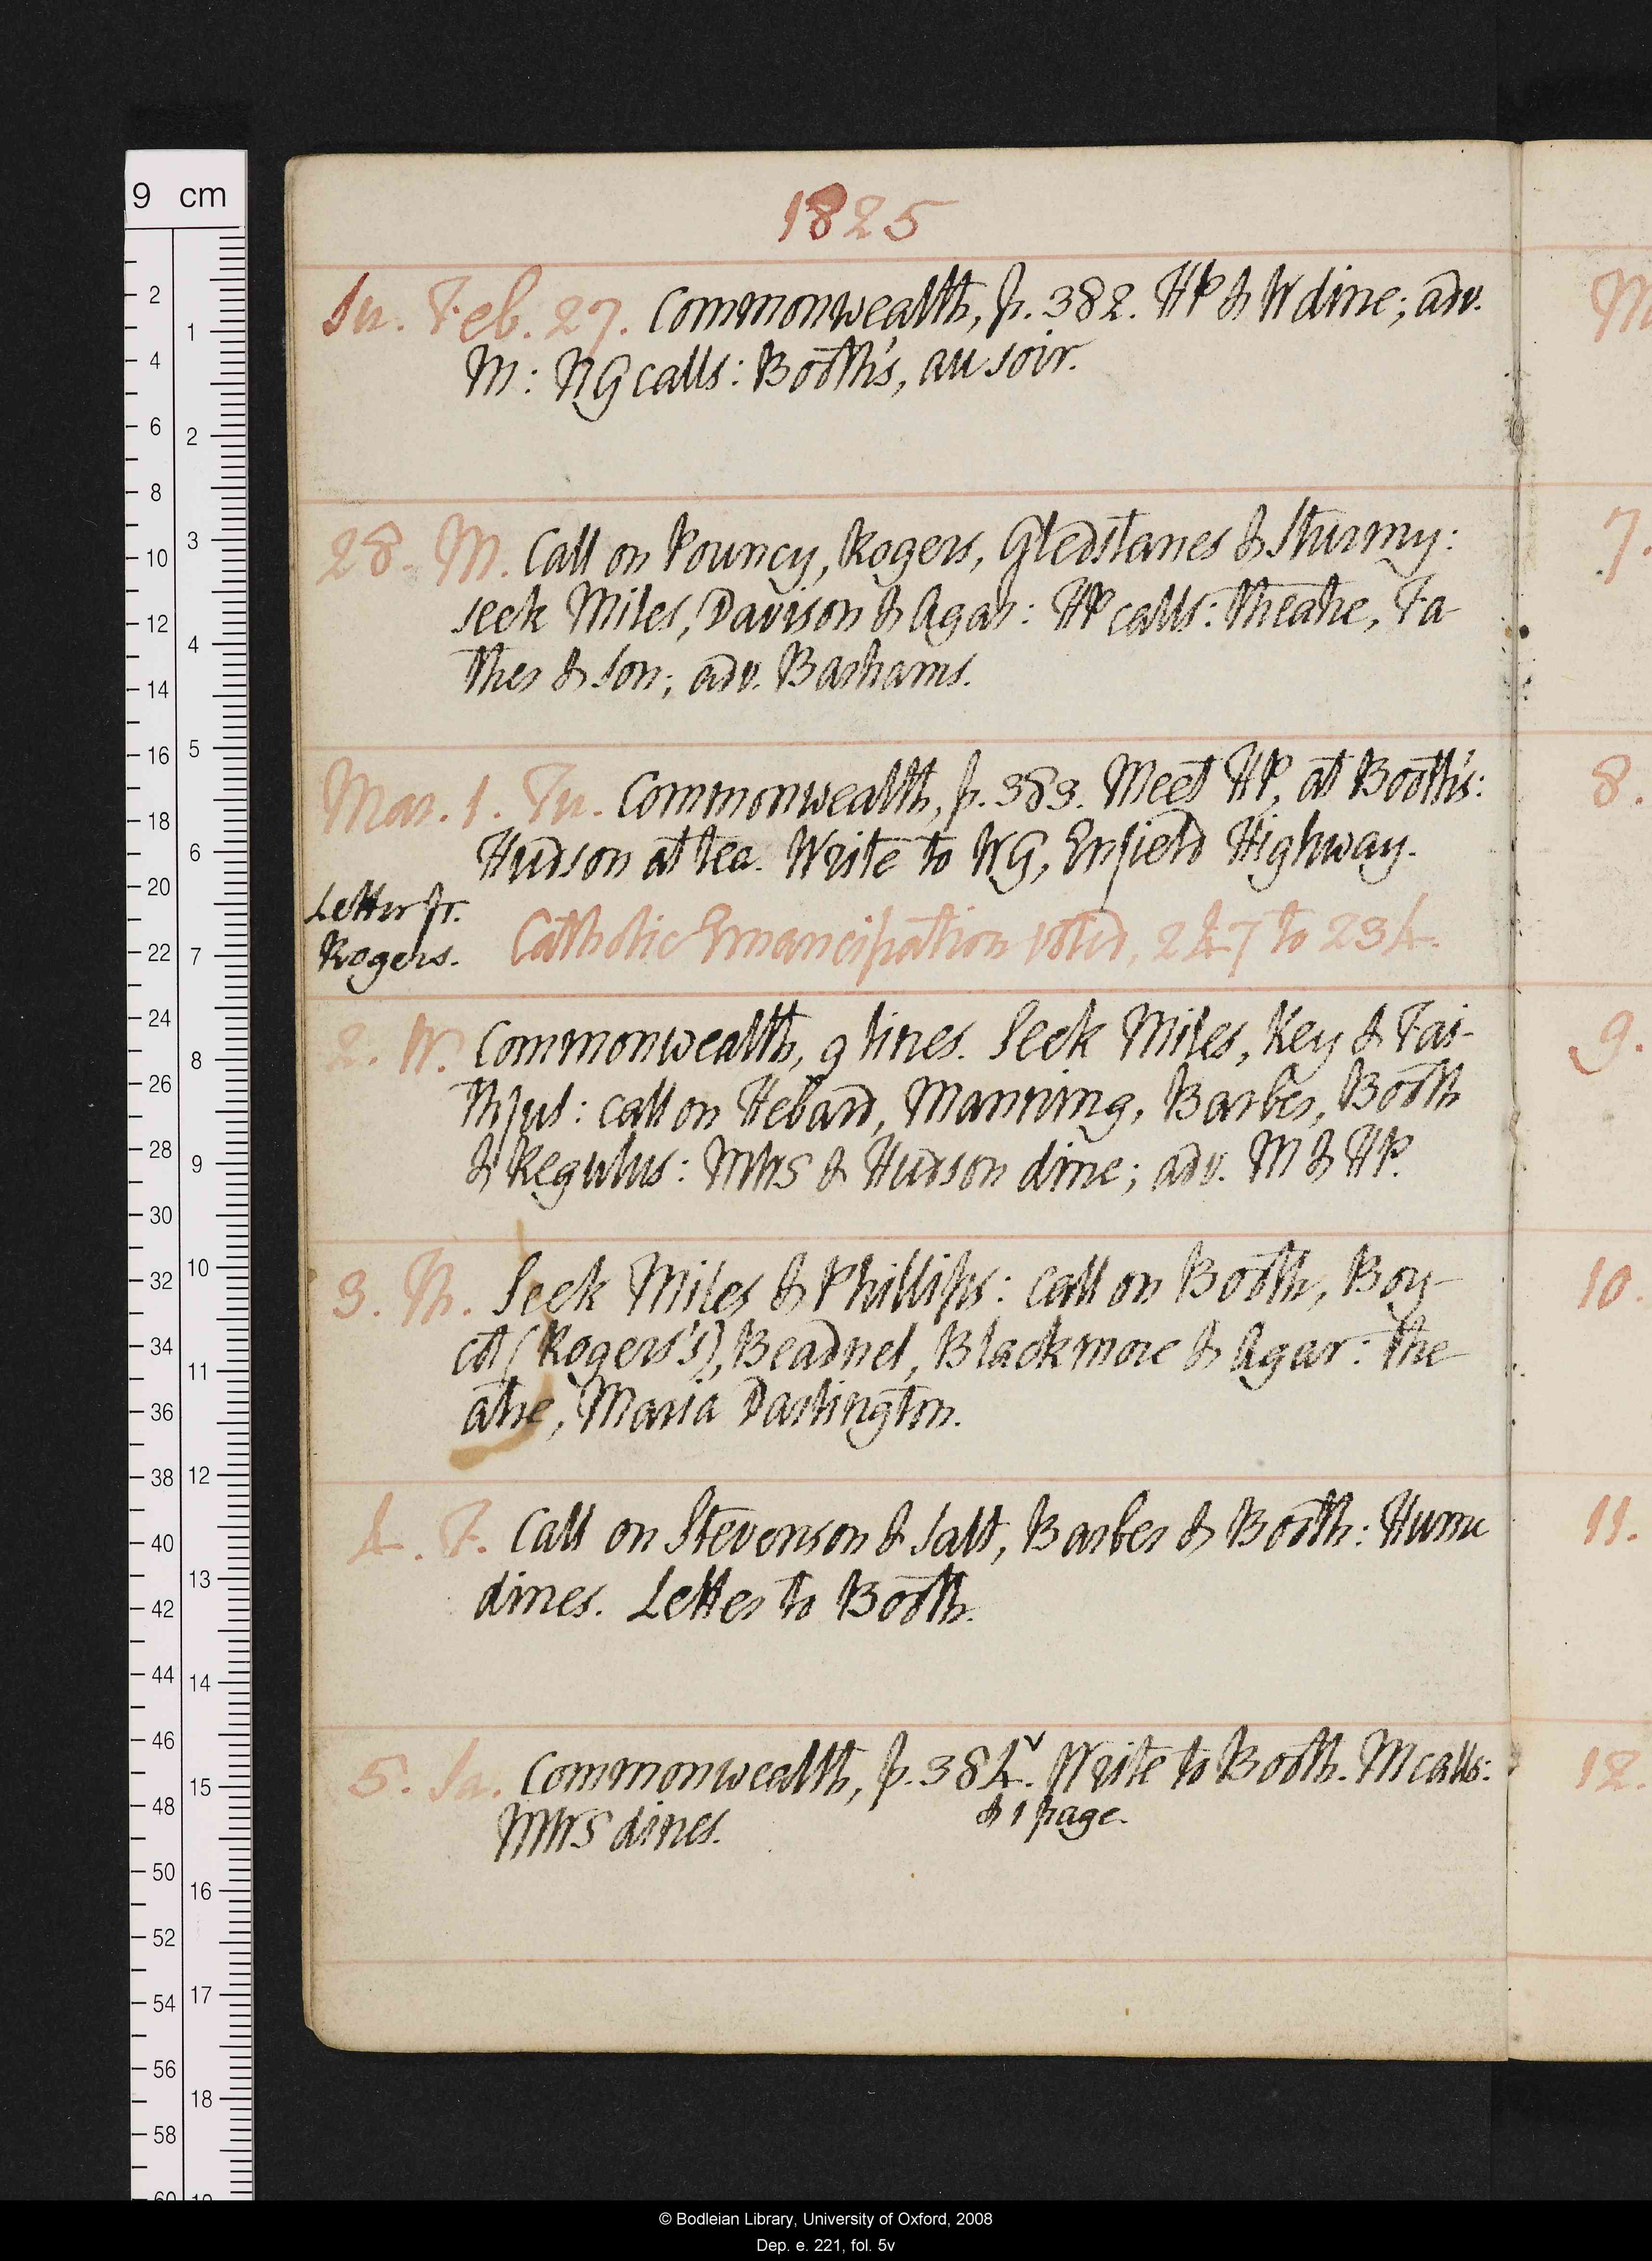 1825
Su. Feb. 27. Commonwealth, p. 382. HP & W dine; adv.
M: NG calls: Booth's, au soir.
28. M. Call on Pouncy, Rogers, Gledstanes & Sturmy:
seek Miles, Davison & Agar: HP calls: theatre, Fa-
ther & Son; adv. Bashams.
Mar. 1. Tu. Commonwealth, p. 383. Meet HP, at Booth's:
Hudson at tea. Write to WG, Enfield Highway.
Letter fr.
Rogers.
Catholic Emancipation voted, 247 to 234.
2. W. Commonwealth, 9 lines. Seek Miles, Key & Fai-
thful: call on Hebard, Manning, Barber, Booth
& Regulus: MWS & Hudson dine; adv. M & HP.
3. Th. Seek Miles & Phillips: call on Booth, Boy-
cot (Rogers's), Beadnel, Blackmore & Agar: the-
atre, Maria Darlington.
4. F. Call on Stevenson & Salt, Barber & Booth: Hume
dines. Letter to Booth.
5. Sa. Commonwealth, p. 384ᵛ. Write to Booth. M calls:
& 1 page.
MWS dines.
M
7.
8.
9.
10.
11.
12.
9 cm
2
4
6
8
10
12
14
16
18
20
22
24
26
28
30
32
34
36
38
40
42
44
46
48
50
52
54
56
58
60
1
2
3
4
5
6
7
8
9
10
11
12
13
14
15
16
17
18
© Bodleian Library, University of Oxford, 2008
Dep. e. 221, fol. 5v